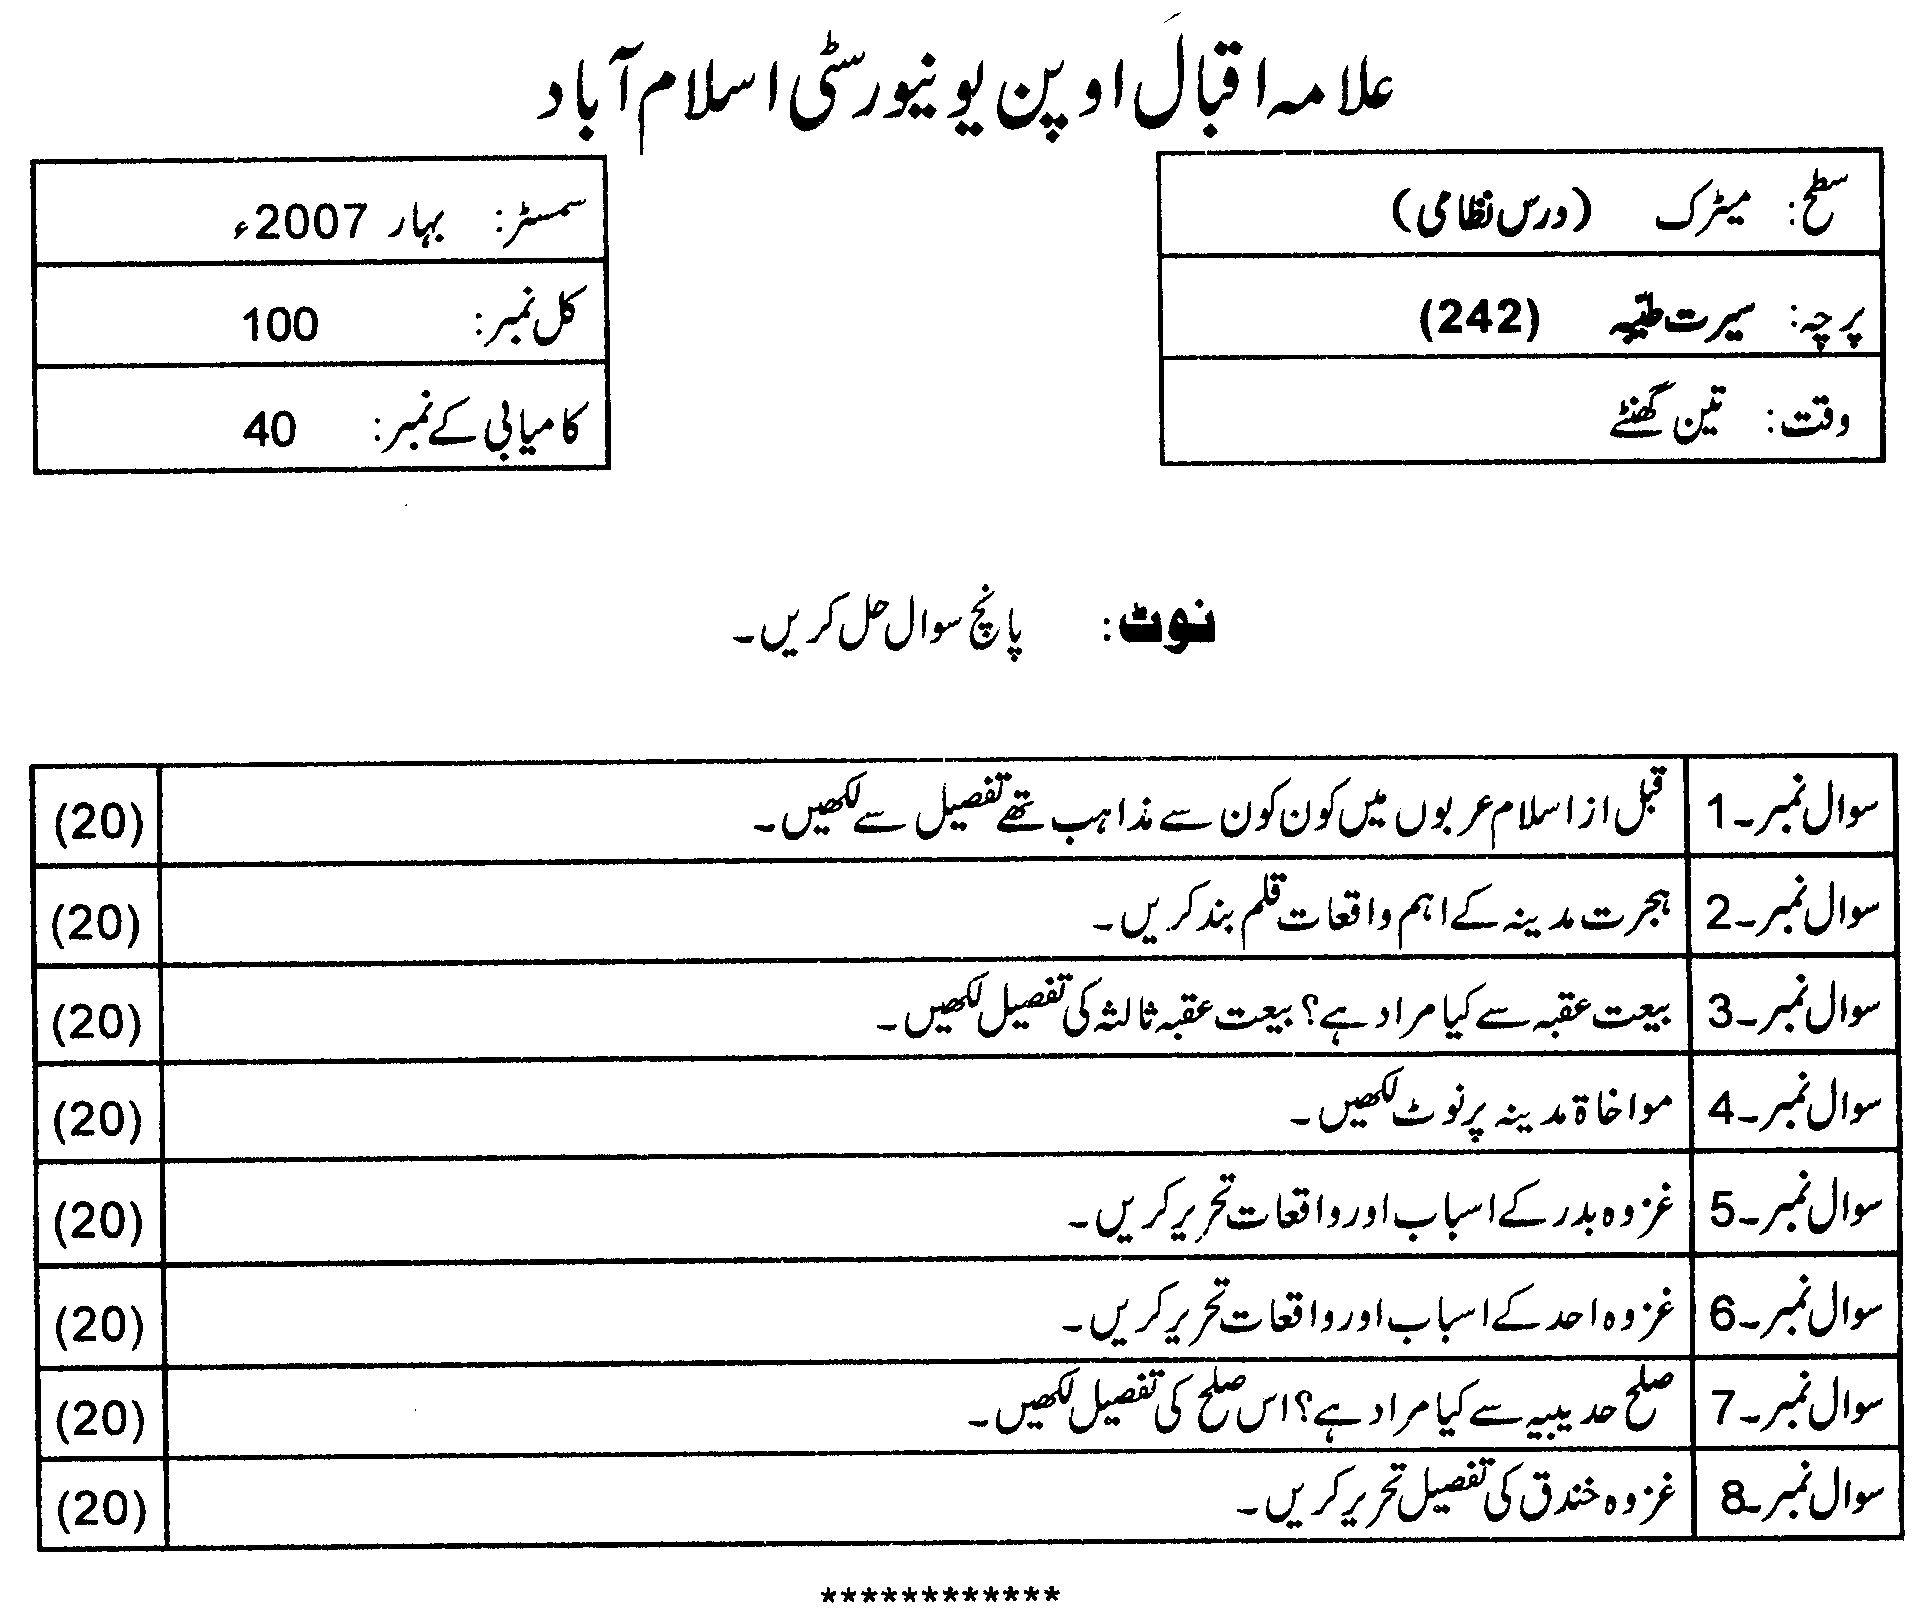 علامہ اقبال اوپن یونیورسٹی اسلام آباد
سطح: میٹرک (درس نظامی)
سمسٹر: بہار 2007ء
پرچہ: سیرت طیبہ (242)
کل نمبر: 100
وقت: تین گھنٹے
کامیابی کے نمبر: 40
نوٹ: پانچ سوال حل کریں۔
سوال نمبر۔1 قبل از اسلام عربوں میں کون کون سے مذاہب تھے تفصیل سے لکھیں۔ (20)
سوال نمبر۔2 ہجرت مدینہ کے اہم واقعات قلم بند کریں۔ (20)
سوال نمبر۔3 بیعت عقبہ سے کیا مراد ہے؟ بیعت عقبہ ثالثہ کی تفصیل لکھیں۔ (20)
سوال نمبر۔4 مواخاۃ مدینہ پر نوٹ لکھیں۔ (20)
سوال نمبر۔5 غزوہ بدر کے اسباب اور واقعات تحریر کریں۔ (20)
سوال نمبر۔6 غزوہ احد کے اسباب اور واقعات تحریر کریں۔ (20)
سوال نمبر۔7 صلح حدیبیہ سے کیا مراد ہے؟ اس صلح کی تفصیل لکھیں۔ (20)
سوال نمبر۔8 غزوہ خندق کی تفصیل تحریر کریں۔ (20)
************